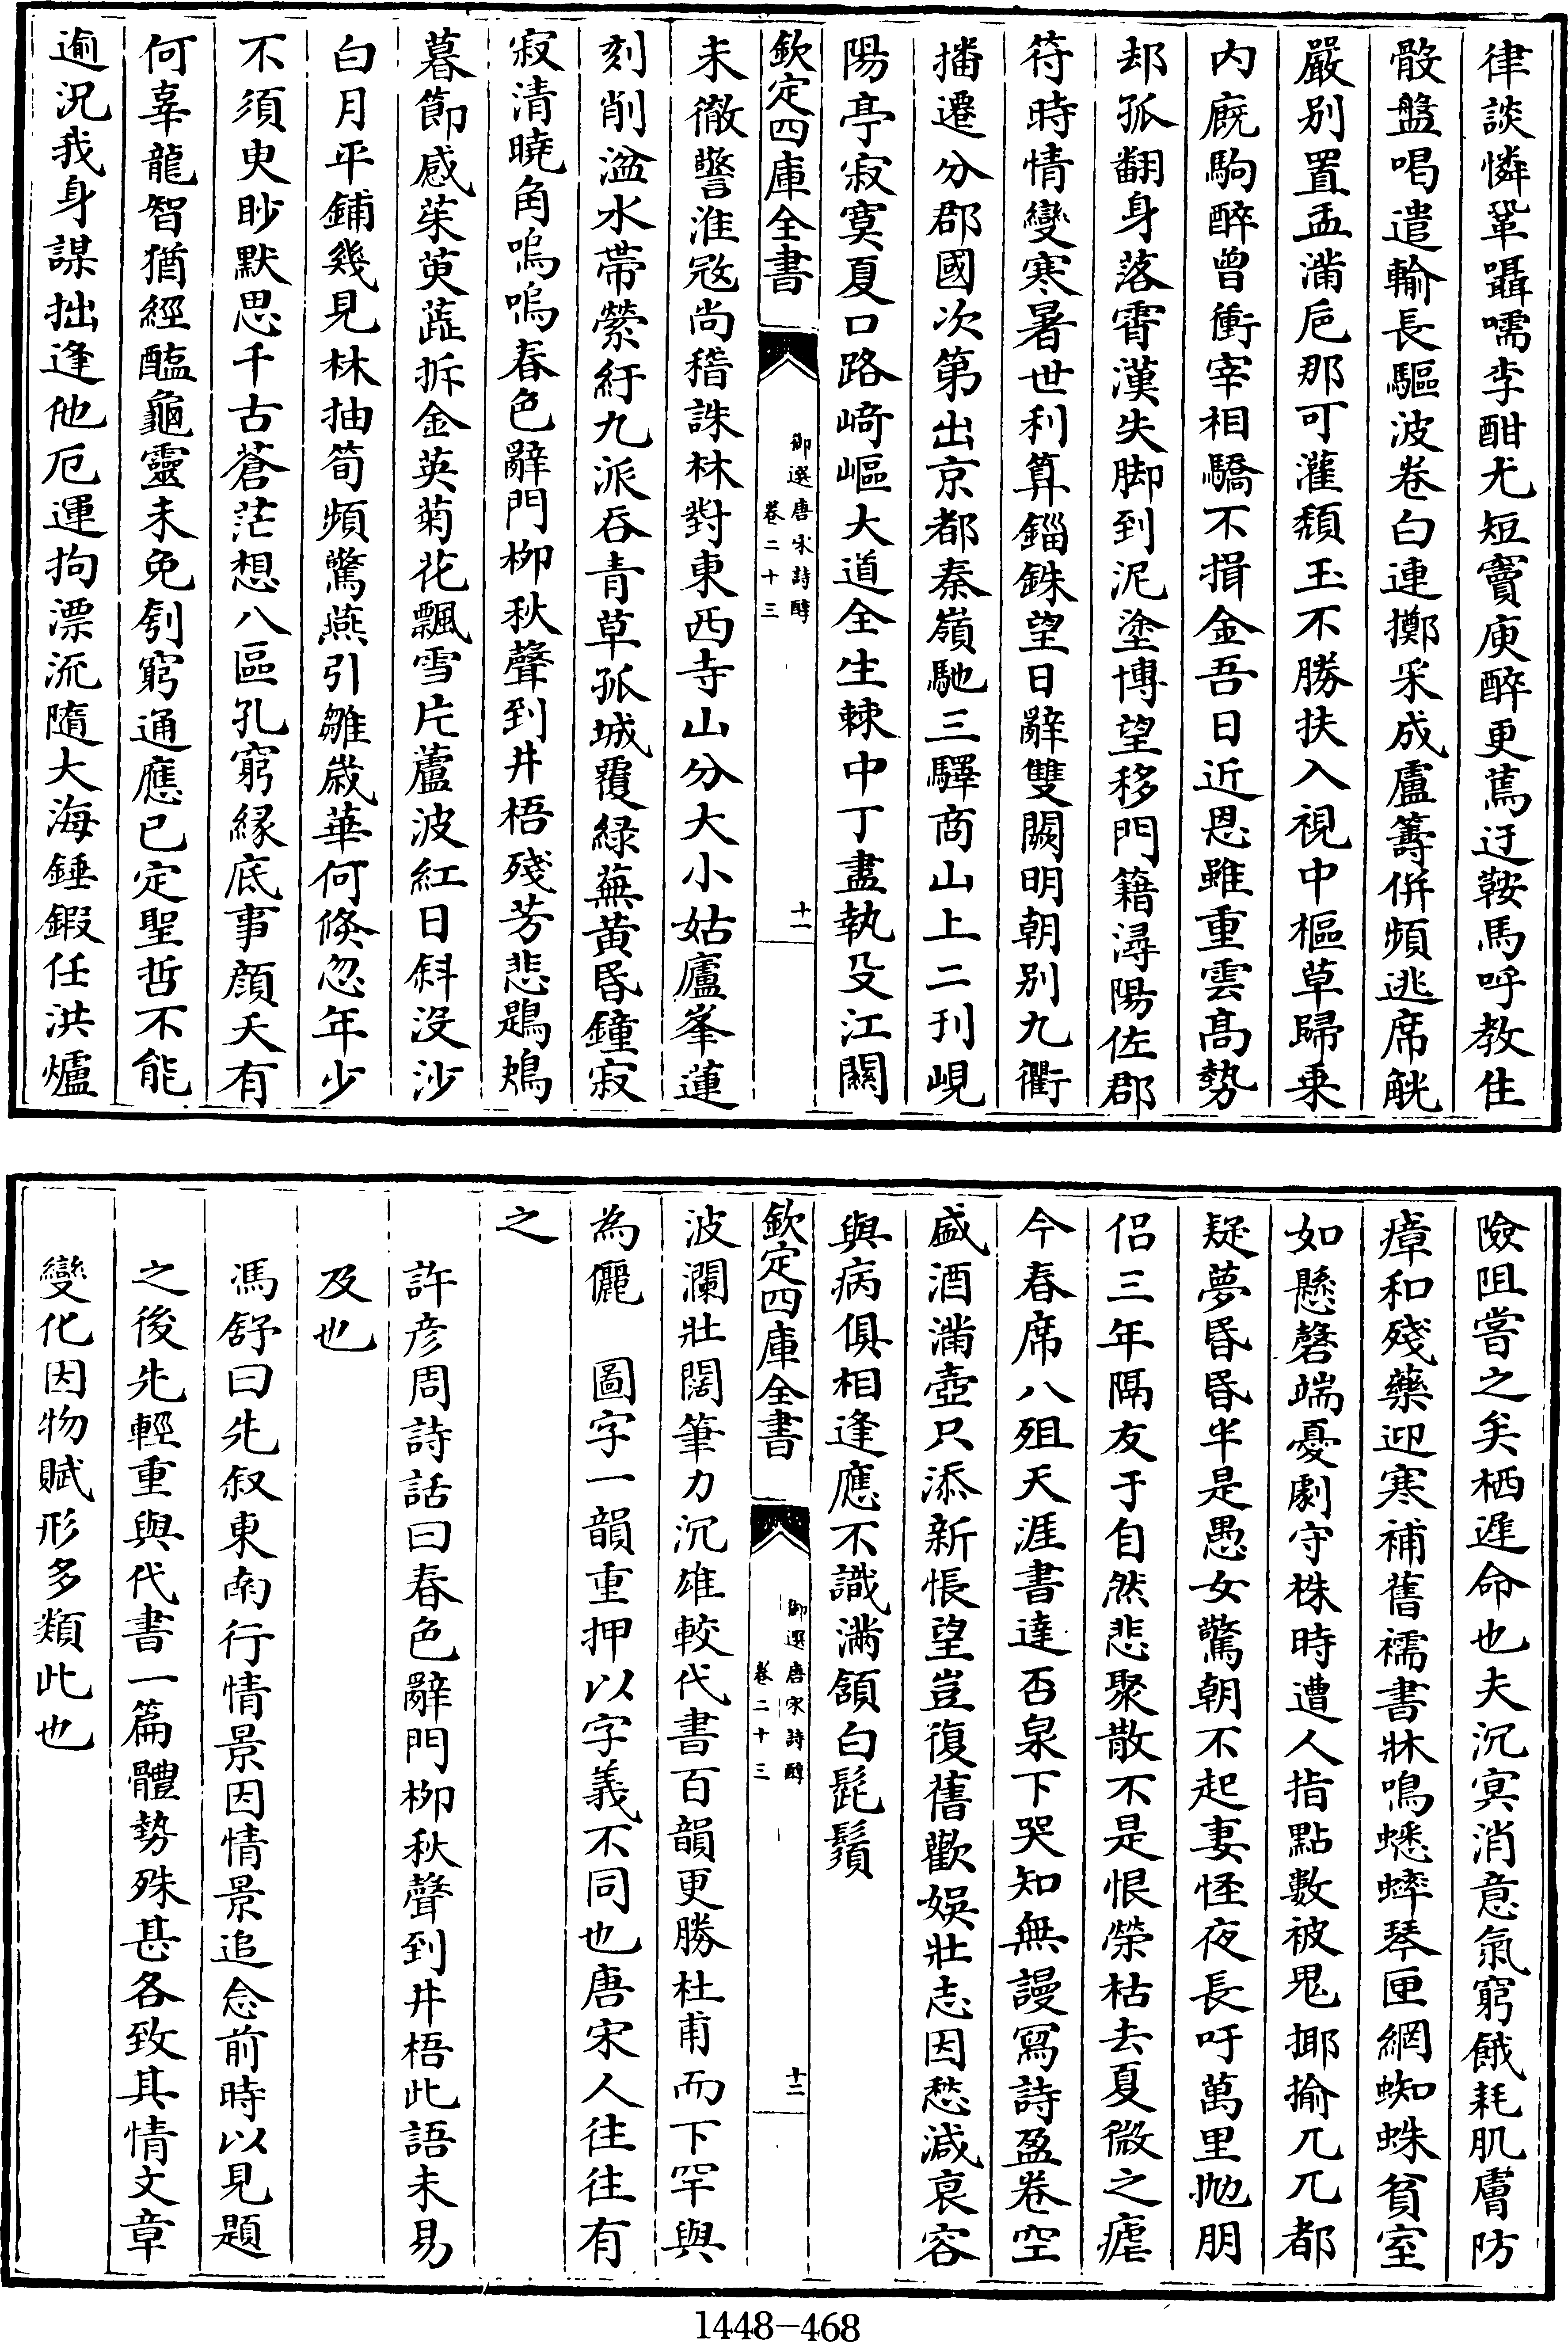 律談憐鞏囁嚅李酣尤短竇庾醉更蔫迂鞍馬呼教住
骰盤喝遣輸長驅波卷白連擲采成盧籌併頻逃席觥
嚴别置盂滿巵那可灌頹玉不勝扶入視中樞草歸乗
内廐駒醉曾衝宰相驕不揖金吾日近恩雖重雲髙勢
却孤翻身落霄漢失脚到泥塗博望移門籍潯陽佐郡
符時情變寒暑世利算錙銖望日辭雙闕明朝别九衢
播遷分郡國次第出京都秦嶺馳三驛商山上二刋峴
陽亭寂寞夏口路﨑嶇大道全生棘中丁盡執殳江闗
欽定四庫全書
御選唐宋詩醇
卷二十三
十一
未徹警淮宼尚稽誅林對東西寺山分大小姑廬峯蓮
刻削湓水帶縈紆九派吞青草孤城覆緑蕪黄昏鐘寂
寂清曉角嗚嗚春色辭門柳秋聲到井梧殘芳悲鶗鴂
暮節感茱萸蕋拆金英菊花飄雪片蘆波紅日斜沒沙
白月平鋪幾見林抽筍頻驚燕引雛歲華何倐忽年少
不須臾眇默思千古蒼茫想八區孔窮緣底事顔夭有
何辜龍智猶經醢龜靈未免刳窮通應已定聖哲不能
逾況我身謀拙逢他厄運拘漂流隨大海錘鍜任洪爐
險阻嘗之矣栖遲命也夫沉㝠消意氣窮餓耗肌膚防
瘴和殘藥迎寒補舊襦書牀鳴蟋蟀琴匣網蜘蛛貧室
如懸磬端憂劇守株時遭人指點數被鬼揶揄兀兀都
疑夢昏昏半是愚女驚朝不起妻怪夜長吁萬里抛朋
侣三年隔友于自然悲聚散不是恨榮枯去夏微之瘧
今春席八殂天涯書達否泉下哭知無謾寫詩盈卷空
盛酒滿壺只添新悵望豈復舊歡娯壯志因愁減衰容
與病俱相逢應不識滿頷白髭鬚
欽定四庫全書
御選唐宋詩醇
卷二十三
十二
波瀾壯闊筆力沉雄較代書百韻更勝杜甫而下罕與
為儷　圖字一韻重押以字義不同也唐宋人往往有
之
許彦周詩話曰春色辭門柳秋聲到井梧此語未易
及也
馮舒曰先叙東南行情景因情景追念前時以見題
之後先輕重與代書一篇體勢殊甚各致其情文章
變化因物賦形多類此也
1448-468